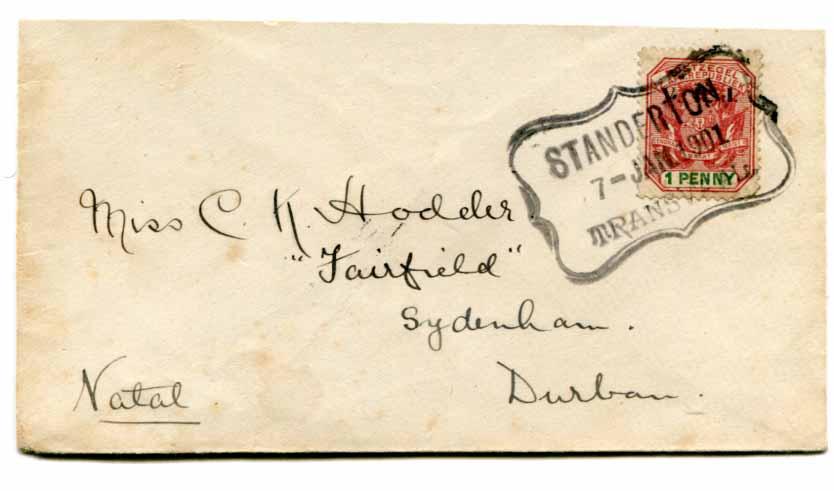 POSTZEGEL
REPUBLIEK
1 PENNY
STANDERTON
7-JAN.1901
TRANSVAAL
Miss C. K. Hodder.
"Fairfield"
Sydenham.
Durban.
Natal